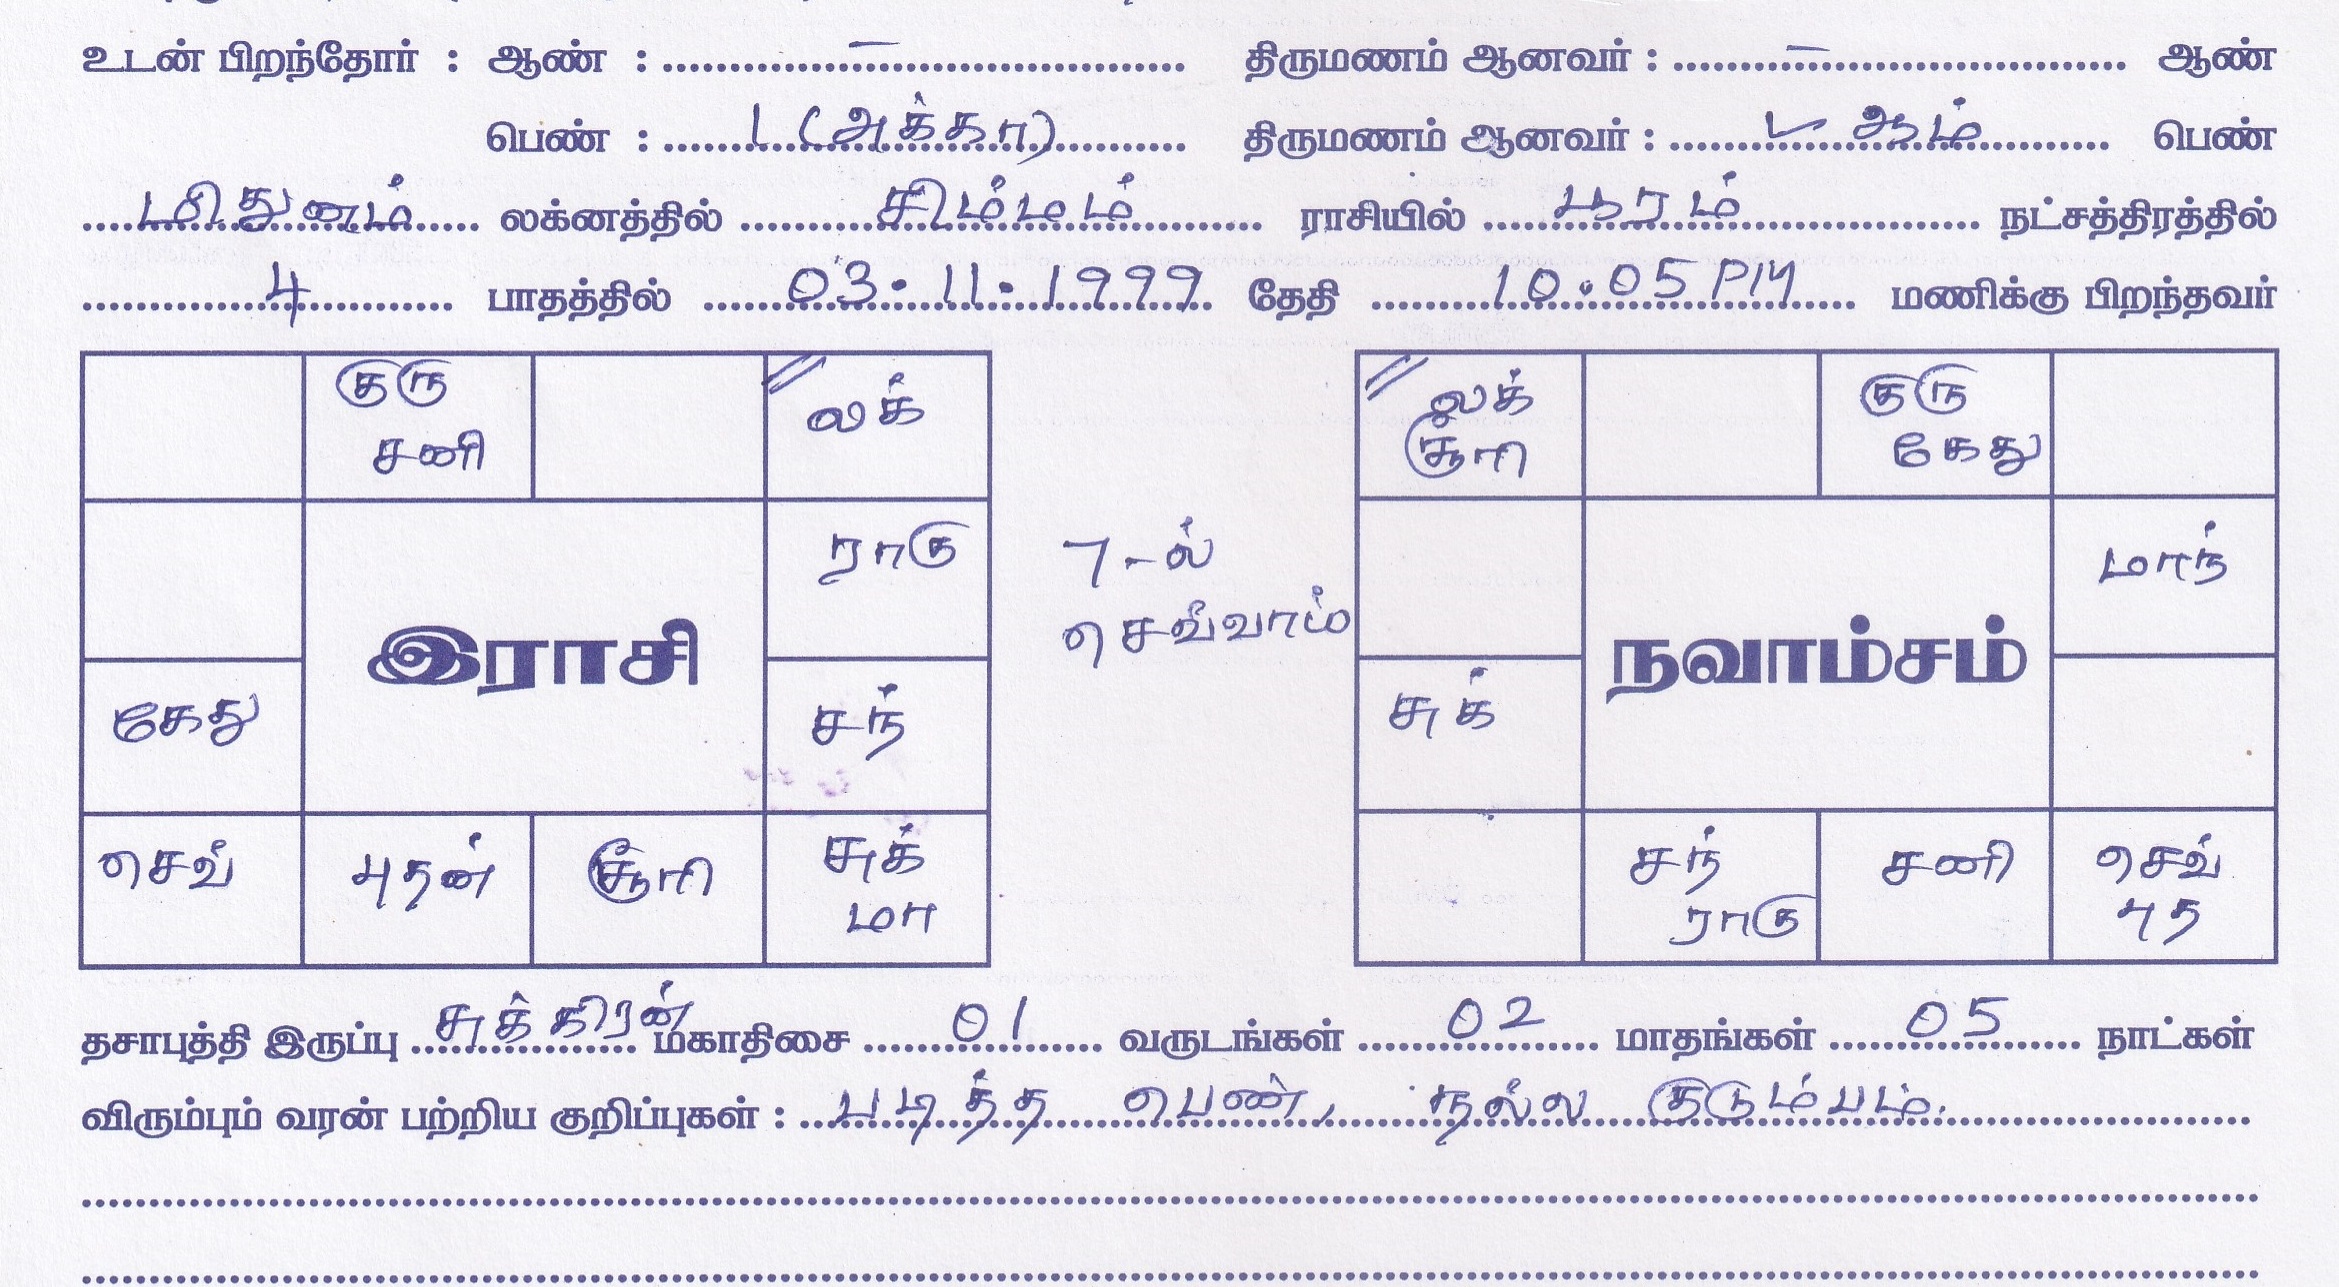 உடன் பிறந்தோர் : ஆண் : – திருமணம் ஆனவர் : – ஆண்
பெண் : 1 (அக்கா) திருமணம் ஆனவர் : ஆம் பெண்
மிதுனம் லக்னத்தில் சிம்மம் ராசியில் பூரம் நட்சத்திரத்தில்
4 பாதத்தில் 03.11.1999 தேதி 10.05 PM மணிக்கு பிறந்தவர்
குரு சனி
லக்
ராகு
கேது
இராசி
சந்
செவ்
புதன்
சூரி
சுக் மா
7-ல்
செவ்வாய்
லக் சூரி
குரு கேது
மாந்
சுக்
நவாம்சம்
சந் ராகு
சனி
செவ் புத
தசாபுத்தி இருப்பு சுக்கிரன் மகாதிசை 01 வருடங்கள் 02 மாதங்கள் 05 நாட்கள்
விரும்பும் வரன் பற்றிய குறிப்புகள் : படித்த பெண், நல்ல குடும்பம்.